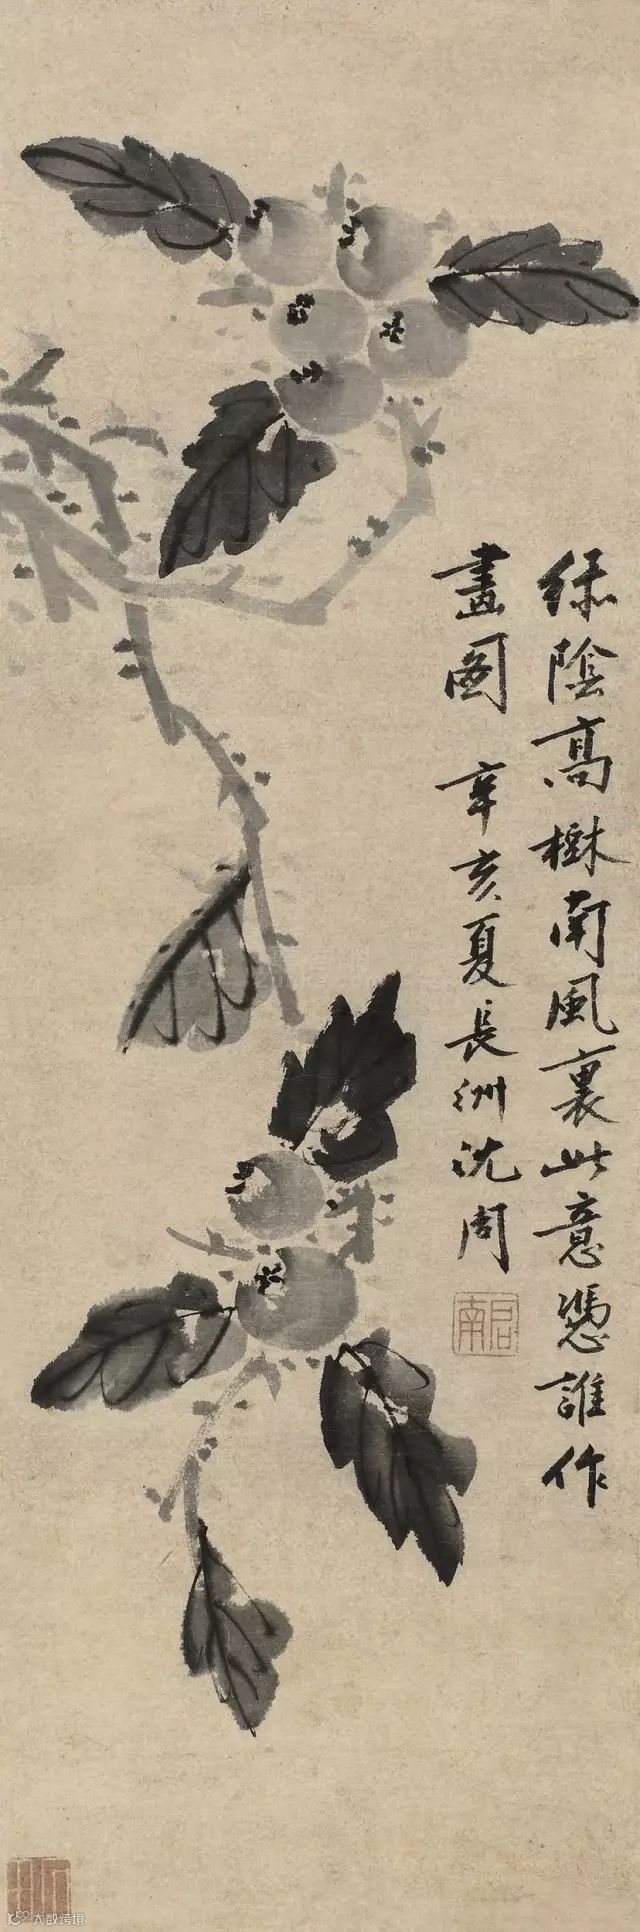 緑陰高樹南風裏此意憑誰作
畫圖 辛亥夏長洲沈周
启南
大数跨境